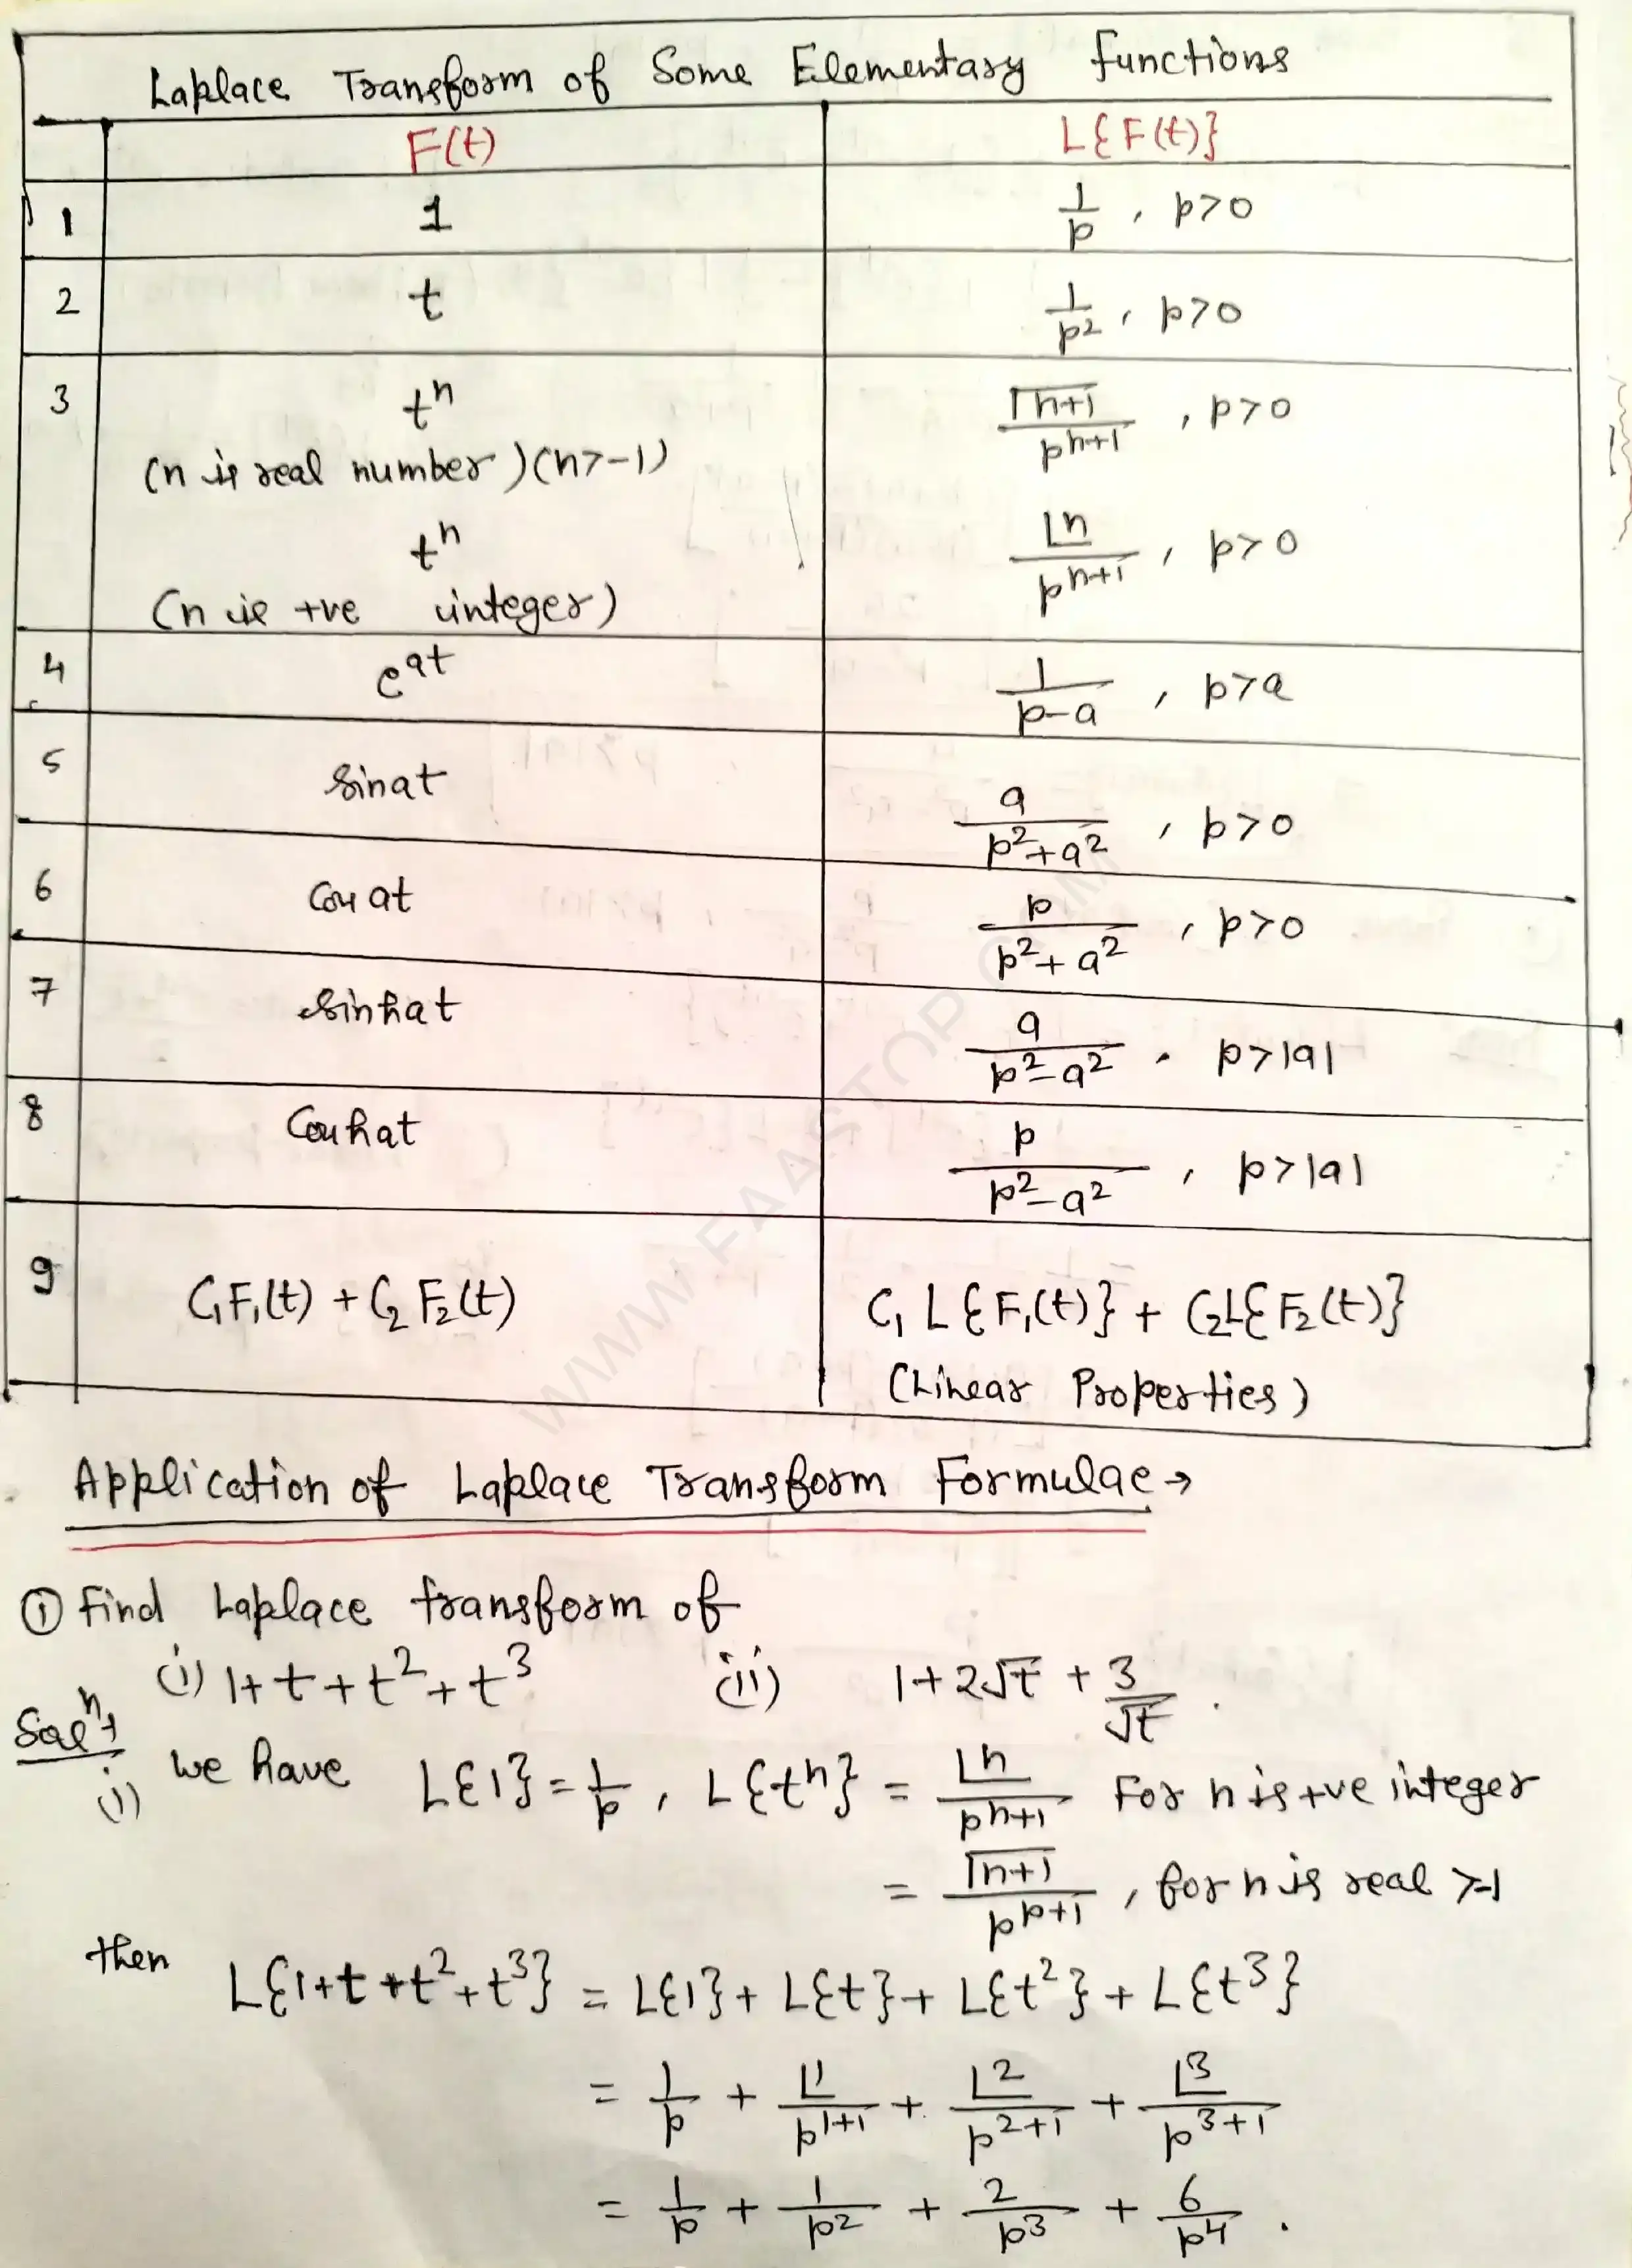 Laplace Transform of Some Elementary functions
F(t) L{F(t)}
1 1 1/p , p>0
2 t 1/p² , p>0
3 tⁿ Γn+1/pⁿ⁺¹ , p>0
(n is real number)(n>-1)
tⁿ ∟n/pⁿ⁺¹ , p>0
(n is +ve integer)
4 e^at 1/p-a , p>a
5 Sinat a/p²+a² , p>0
6 Cos at p/p²+a² , p>0
7 Sinhat a/p²-a² . p>|a|
8 Coshat p/p²-a² , p>|a|
9 C₁F₁(t) + C₂F₂(t) C₁ L{F₁(t)} + C₂L{F₂(t)}
(Linear Properties)
WWW.FAASTOP.COM
Application of Laplace Transform Formulae →
① Find Laplace transform of
(i) 1+t+t²+t³ (ii) 1+2√t + 3/√t .
Solⁿ→
(i) we have L{1} = 1/p , L{tⁿ} = ∟n/pⁿ⁺¹ For n is +ve integer
= Γn+1/p^p+1 , for n is real >-1
then L{1+t+t²+t³} = L{1} + L{t} + L{t²} + L{t³}
= 1/p + ∟1/p¹⁺¹ + ∟2/p²⁺¹ + ∟3/p³⁺¹
= 1/p + 1/p² + 2/p³ + 6/p⁴ .